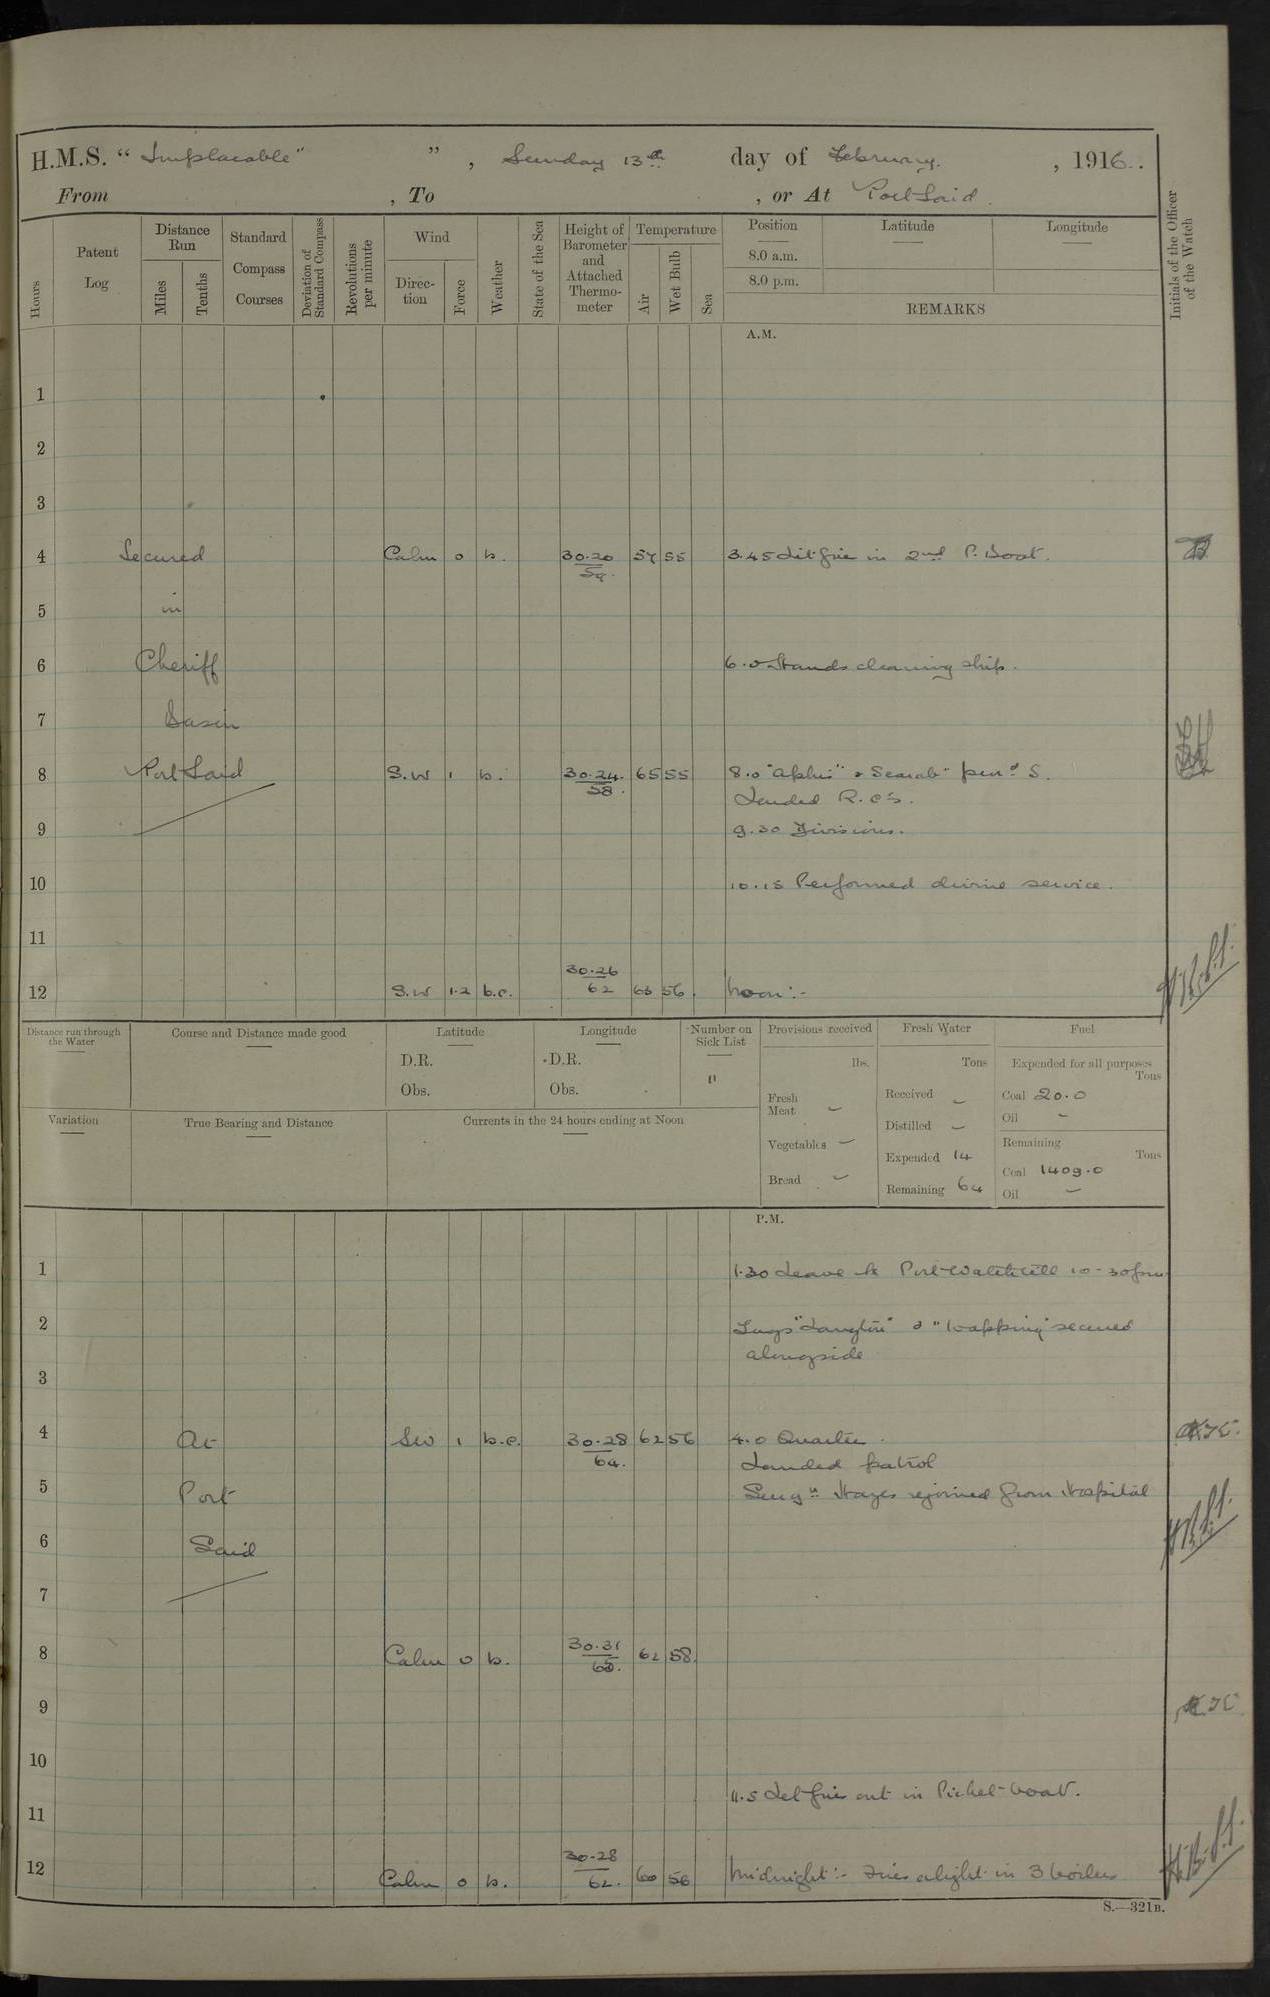 H.M.S. " Implacable " ", Sunday 13th day of February, 1916.
From , To , or At Port Said.
Hours
Patent Log
Distance Run
Miles
Tenths
Standard Compass Courses
Deviation of Standard Compass
Revolutions per minute
Wind
Direction
Force
Weather
State of the Sea
Height of Barometer and Attached Thermometer
Temperature
Air
Wet Bulb
Sea
Position
8.0 a.m.
8.0 p.m.
Latitude
Longitude
REMARKS
Initials of the Officer of the Watch
A.M.
1
2
3
4 Secured Calm 0 b. 30.20 57 55 3.45 Lit fire in 2nd P. Boat.
59.
5 in
6 Cheriff 6.0 Hands cleaning ship.
7 Basin
8 Port Said S.W 1 b. 30.24. 65 55 8.0 "Aphis" & Scarab"
58.
Landed R.C's.
9 9.30 Divisions.
10 10.15 Performed divine service.
11
30.26
12 S.W 1.2 b.c. 62 63 56. Noon:-
Distance run through the Water
Course and Distance made good
Latitude
D.R.
Obs.
Longitude
D.R.
Obs.
Number on Sick List
11
Provisions received
lbs.
Fresh Meat –
Vegetables –
Bread –
Fresh Water
Tons
Received –
Distilled –
Expended 14
Remaining 64
Fuel
Expended for all purposes
Tons
Coal 20.0
Oil –
Remaining
Tons
Coal 1409.0
Oil –
Variation
True Bearing and Distance
Currents in the 24 hours ending at Noon
P.M.
1 1.30 Leave to Port Watch till 10-30pm
2 Tugs "Langton" & "Wapping" secured
alongside
3
4 At SW 1 b.c. 30.28 62 56 4.0 Quarters.
64.
Landed patrol
5 Port Surgn Hayes rejoined from Hospital
6 Said
7
30.31
8 Calm 0 b. 62 58.
9
10
11.5 Let fires out in Picket-boat.
11
30.28
12 Calm 0 b. 62. 60 56 Midnight:- Fires alight in 3 boilers
S.—321B.